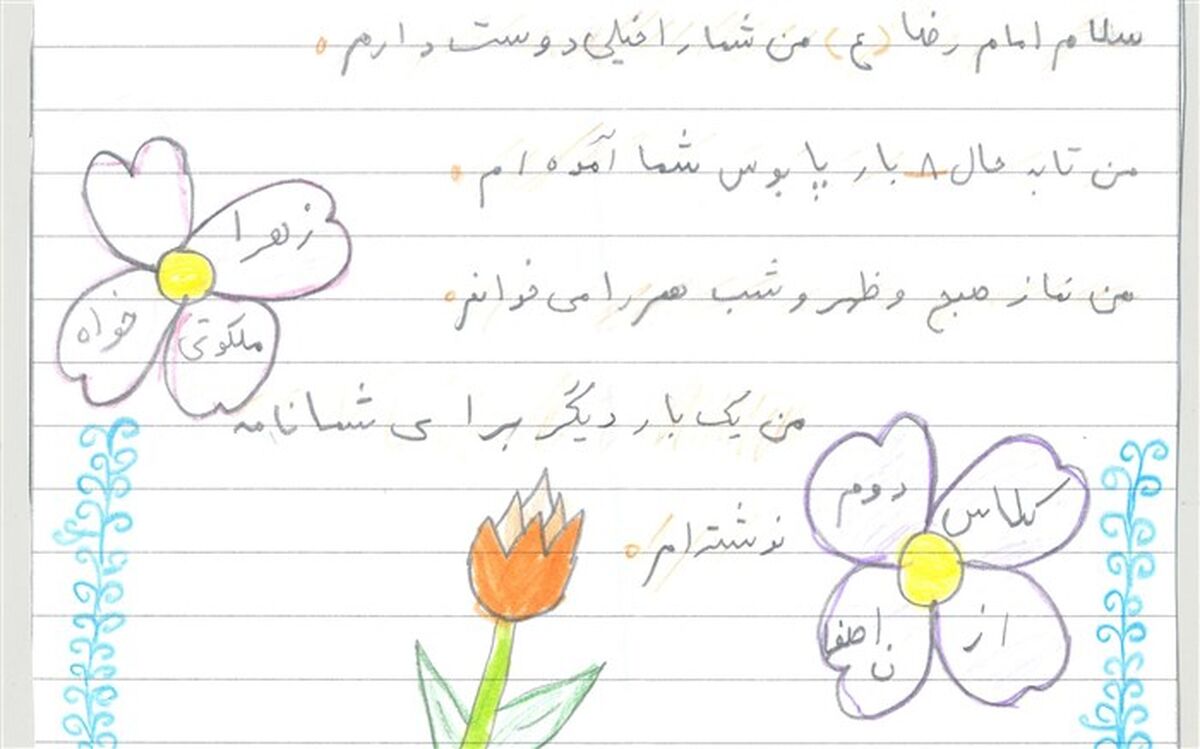 سلام امام رضا (ع) من شما را خیلی دوست دارم.
من تا به حال ۸ بار پا بوس شما آمده ام.
من نماز صبح و ظهر و شب هم را می خوانم.
من یک بار دیگر برای شما نامه
نوشته ام.
زهرا
ملکوتی
خواه
کلاس
دوم
از
اصفا
ن